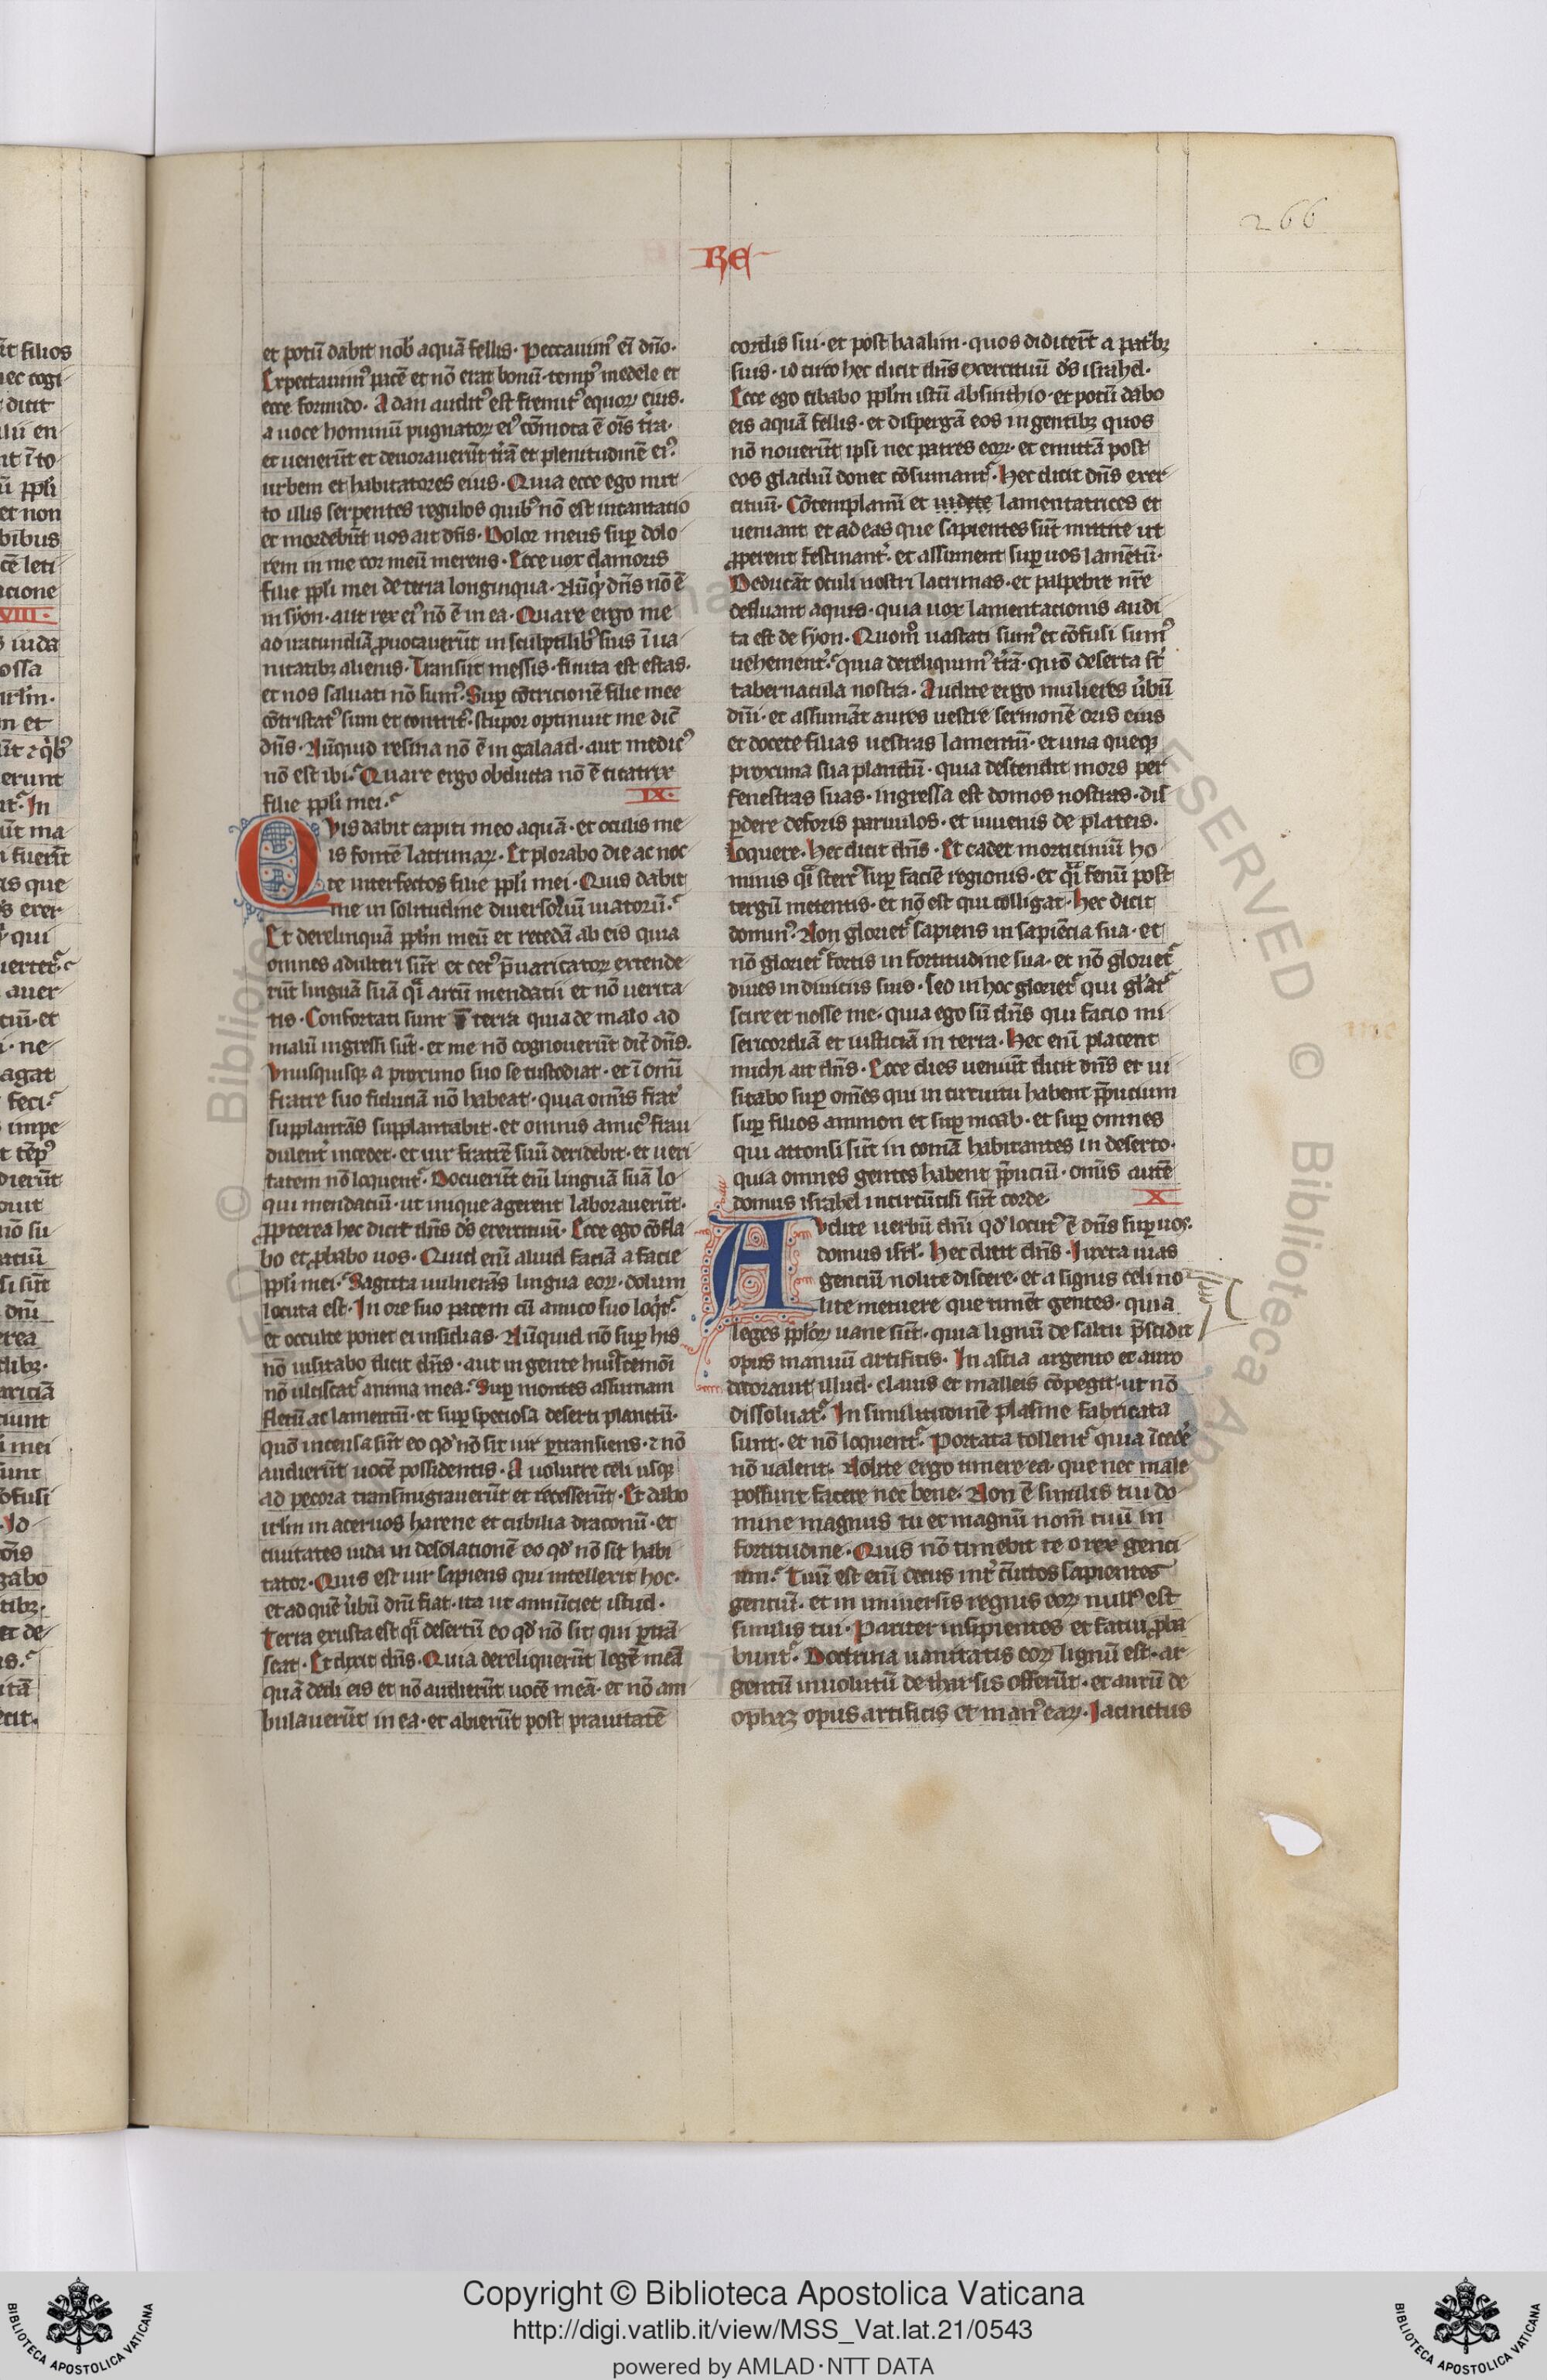 266
RE
et potū dabit nob̄ aquā fellis. Peccauimꝰ em̄ dn̄o.
Expectauimꝰ pacē et nō erat bonū. tempꝰ medele et
ecce formido. A dan auditꝰ est fremitꝰ equoꝝ eius.
a uoce hominnū pugnatoꝝ eiꝰ cōmota ē om̄s tr̄a.
et uenerūt et deuorauerūt tr̄ā et plenitudinē eiꝰ.
urbem et habitatores eius. Quia ecce ego mit
to illis serpentes regulos quibꝰ nō est incantatio
et mordebūt uos ait dn̄s. Dolor meus sup̄ dolo
rem in me cor meū merens. Ecce uox clamoris
filie pp̄li mei de terra longinqua. Nūq̄ dn̄s nō ē
in syon. aut rex eiꝰ nō ē in ea. Quare ergo me
ad iracundiā ꝓuocauerūt in sculptilibꝰ suis ī ua
nitatibꝫ alienis. Transiit messis. finita est estas.
et nos saluati nō sumꝰ. Sup̄ cōtricionē filie mee
cōtristatꝰ sum et contritꝰ. stupor optinuit me dic̄
dn̄s. Nūquid resina nō ē in galaad. aut medicꝰ
nō est ibi. Quare ergo obducta nō ē cicatrix
filie pp̄li mei. IX.
Qvis dabit capiti meo aquā. et oculis me
is fontē lacrimaꝝ. Et plorabo die ac noc
te interfectos filie pp̄li mei. Quis dabit
me in solitudine diuersoriū uiatorū.
Et derelinquā pp̄lm meū et recedā ab eis quia
omnes adulteri sūt et cetꝰ p̄uaricatoꝝ extende
rūt linguā suā q̄i arcū mendacii et nō uerita
tis. Confortati sunt in terra quia de malo ad
malū ingressi sūt. et me nō cognouerūt dic̄ dn̄s.
Vnusquisqꝫ a proximo suo se custodiat. et ī om̄i
fratre suo fiduciā nō habeat. quia om̄is frater
supplantās supplantabit. et omnis amicꝰ frau
dulent̄ incedet. et uir fratrē suū deridebit. et ueri
tatem nō loquent᷑. Docuerūt em̄ linguā suā lo
qui mendaciū. ut inique agerent laborauerūt.
ꝓpterea hec dicit dn̄s dꝰs exercituū. Ecce ego cōfla
bo et ꝓbabo uos. Quid em̄ aliud faciā a facie
pp̄li mei. Sagitta uulnerās lingua eoꝝ. dolum
locuta est. In ore suo pacem cū amico suo loq̄t᷑.
et occulte ponit ei insidias. Nūquid nō sup̄ his
nō uisitabo dicit dn̄s. aut in gente huiꝰcemōi
nō ulciscat᷑ anima mea. Sup̄ montes assumam
fletū ac lamentū. et sup̄ speciosa deserti planctū.
quō incensa sūt eo qd̄ nō sit uir ꝑtransiens. ⁊ nō
audierūt uocē possidentis. A uolucre celi usqꝫ
ad pecora transmigrauerūt et recesserūt. Et dabo
irlm̄ in aceruos harene et cubilia draconū. et
ciuitates iuda in desolationē eo qd̄ nō sit habi
tator. Quis est uir sapiens qui intellexit hoc.
et ad quē ūbū dn̄i fiat. ita ut annūciet istud.
Terra exusta est q̄i desertū eo qd̄ nō sit qui ꝑtrā
seat. Et dixit dn̄s. Quia dereliquerūt legē meā
quā dedi eis et nō audierūt uocē meā. et nō am
bulauerūt in ea. et abierūt post prauitatē
cordis sui. et post baalim. quos didicerūt a patribꝫ
suis. idcirco hec dicit dn̄s exercituū dꝰs israhel.
Ecce ego cibabo pp̄lm istū absinthio. et potū dabo
eis aquā fellis. et dispergā eos in gentibꝫ quos
nō nouerūt ipsi nec patres eoꝝ. et emittā post
eos gladiū donec cōsumant᷑. Hec dicit dn̄s exer
cituū. Cōtemplamī et uidete lamentatrices et
ueniant et ad eas que sapientes sūt mittite ut
ꝓperent festinant᷑. et assument sup̄ uos lamētū.
Deducāt oculi uostri lacrimas. et palpebre nr̄e
defluant aquis. quia uox lamentacionis audi
ta est de syon. Quomō uastati sumꝰ et cōfusi sumꝰ
uehement᷑. quia dereliquimꝰ tr̄ā. quō deserta sūt
tabernacula nostra. Audite ergo mulieres ūbū
dn̄i. et assumāt aures uestre sermonē oris eius
et docete filias uestras lamentū. et una queqꝫ
proxima sua planctū. quia descendit mors per
fenestras suas. ingressa est domos nostras. dis
ꝑdere deforis paruulos. et iuuenis de plateis.
Loquere. Hec dicit dn̄s. Et cadet morticiniū ho
minis q̄i stercꝰ sup̄ faciē regionis. et q̄i fenū post
tergū metentis. et nō est qui colligat. Hec dicit
dominꝰ. Non gloriet᷑ sapiens in sapiēcia sua. et
nō gloriet᷑ fortis in fortitudine sua. et nō gloriet᷑
diues in diuiciis suis. sed in hoc gloriet᷑ qui gl̄at᷑
scire et nosse me. quia ego sū dn̄s qui facio mi
sericordiā et iusticiā in terra. Hec em̄ placent
michi ait dn̄s. Ecce dies ueniūt dicit dn̄s et ui
sitabo sup̄ om̄es qui in circuitu habent p̄pucium
sup̄ filios ammon et sup̄ moab. et sup̄ omnes
qui attonsi sūt in comā habitantes in deserto.
quia omnes gentes habent p̄puciū. om̄is autē
domus israhel incircūcisi sūt corde. X
Avdite uerbū dn̄i qd̄ locutꝰ ē dn̄s sup̄ uos
domus isrl̄. Hec dicit dn̄s. Iuxta uias
genciū nolite discere. et a signis celi no
lite metuere que timēt gentes. quia
leges pp̄loꝝ uane sūt. quia lignū de saltu p̄scidit
opus manuū artificis. In ascia argento et auro
decorauit illud. clauis et malleis cōpegit. ut nō
dissoluat᷑. In similitudinē palme fabricata
sunt. et nō loquent᷑. Portata tollent᷑ quia īcedē
nō ualent. Nolite ergo timere ea. que nec male
possunt facere nec bene. Non ē similis tui do
mine magnus tu et magnū nom̄ tuū in
fortitudine. Quis nō timebit te o rex genci
um. Tuū est em̄ decus int̄ cūctos sapientes
genciū. et in uniuersis regnis eoꝝ nullꝰ est
similis tui. Pariter insipientes et fatui ꝓba
bunt᷑. Doctrina uanitatis eoꝝ lignū est. ar
gentū inuolutū de tharsis offerūt. et aurū de
ophaz opus artificis et manꝰ eaꝝ. Iacinctus
Copyright © Biblioteca Apostolica Vaticana
http://digi.vatlib.it/view/MSS_Vat.lat.21/0543
powered by AMLAD·NTT DATA
BIBLIOTECA APOSTOLICA VATICANA
BIBLIOTECA APOSTOLICA VATICANA